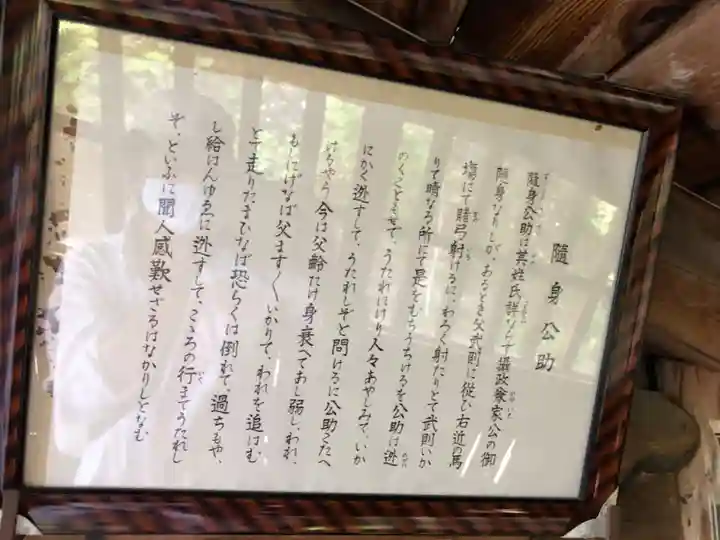 隨身公助
隨身公助は其姓氏詳ならず攝政兼家公の御
隨身なりしが、あるとき父武則に従ひ右近の馬
塲にて賭弓射けるに、わろく射たりとて武則いか
りて晴なる所にて是をむちうちけるを公助は逃
のくこともせで、うたれにけり人々あやしみて、いか
にかく逃ずして、うたれしぞと問けるに公助こたへ
けるやう今は父齢たけ身衰へてあし弱し、われ、
もしにげなば父ます〱いかりて、われを追はむ
とて走りたまひなば恐らくは倒れて、過ちもや、
し給はんゆゑに逃ずして、こゝろの行までうたれし
ぞ、といふに聞人感歎せざるはなかりしとなむ